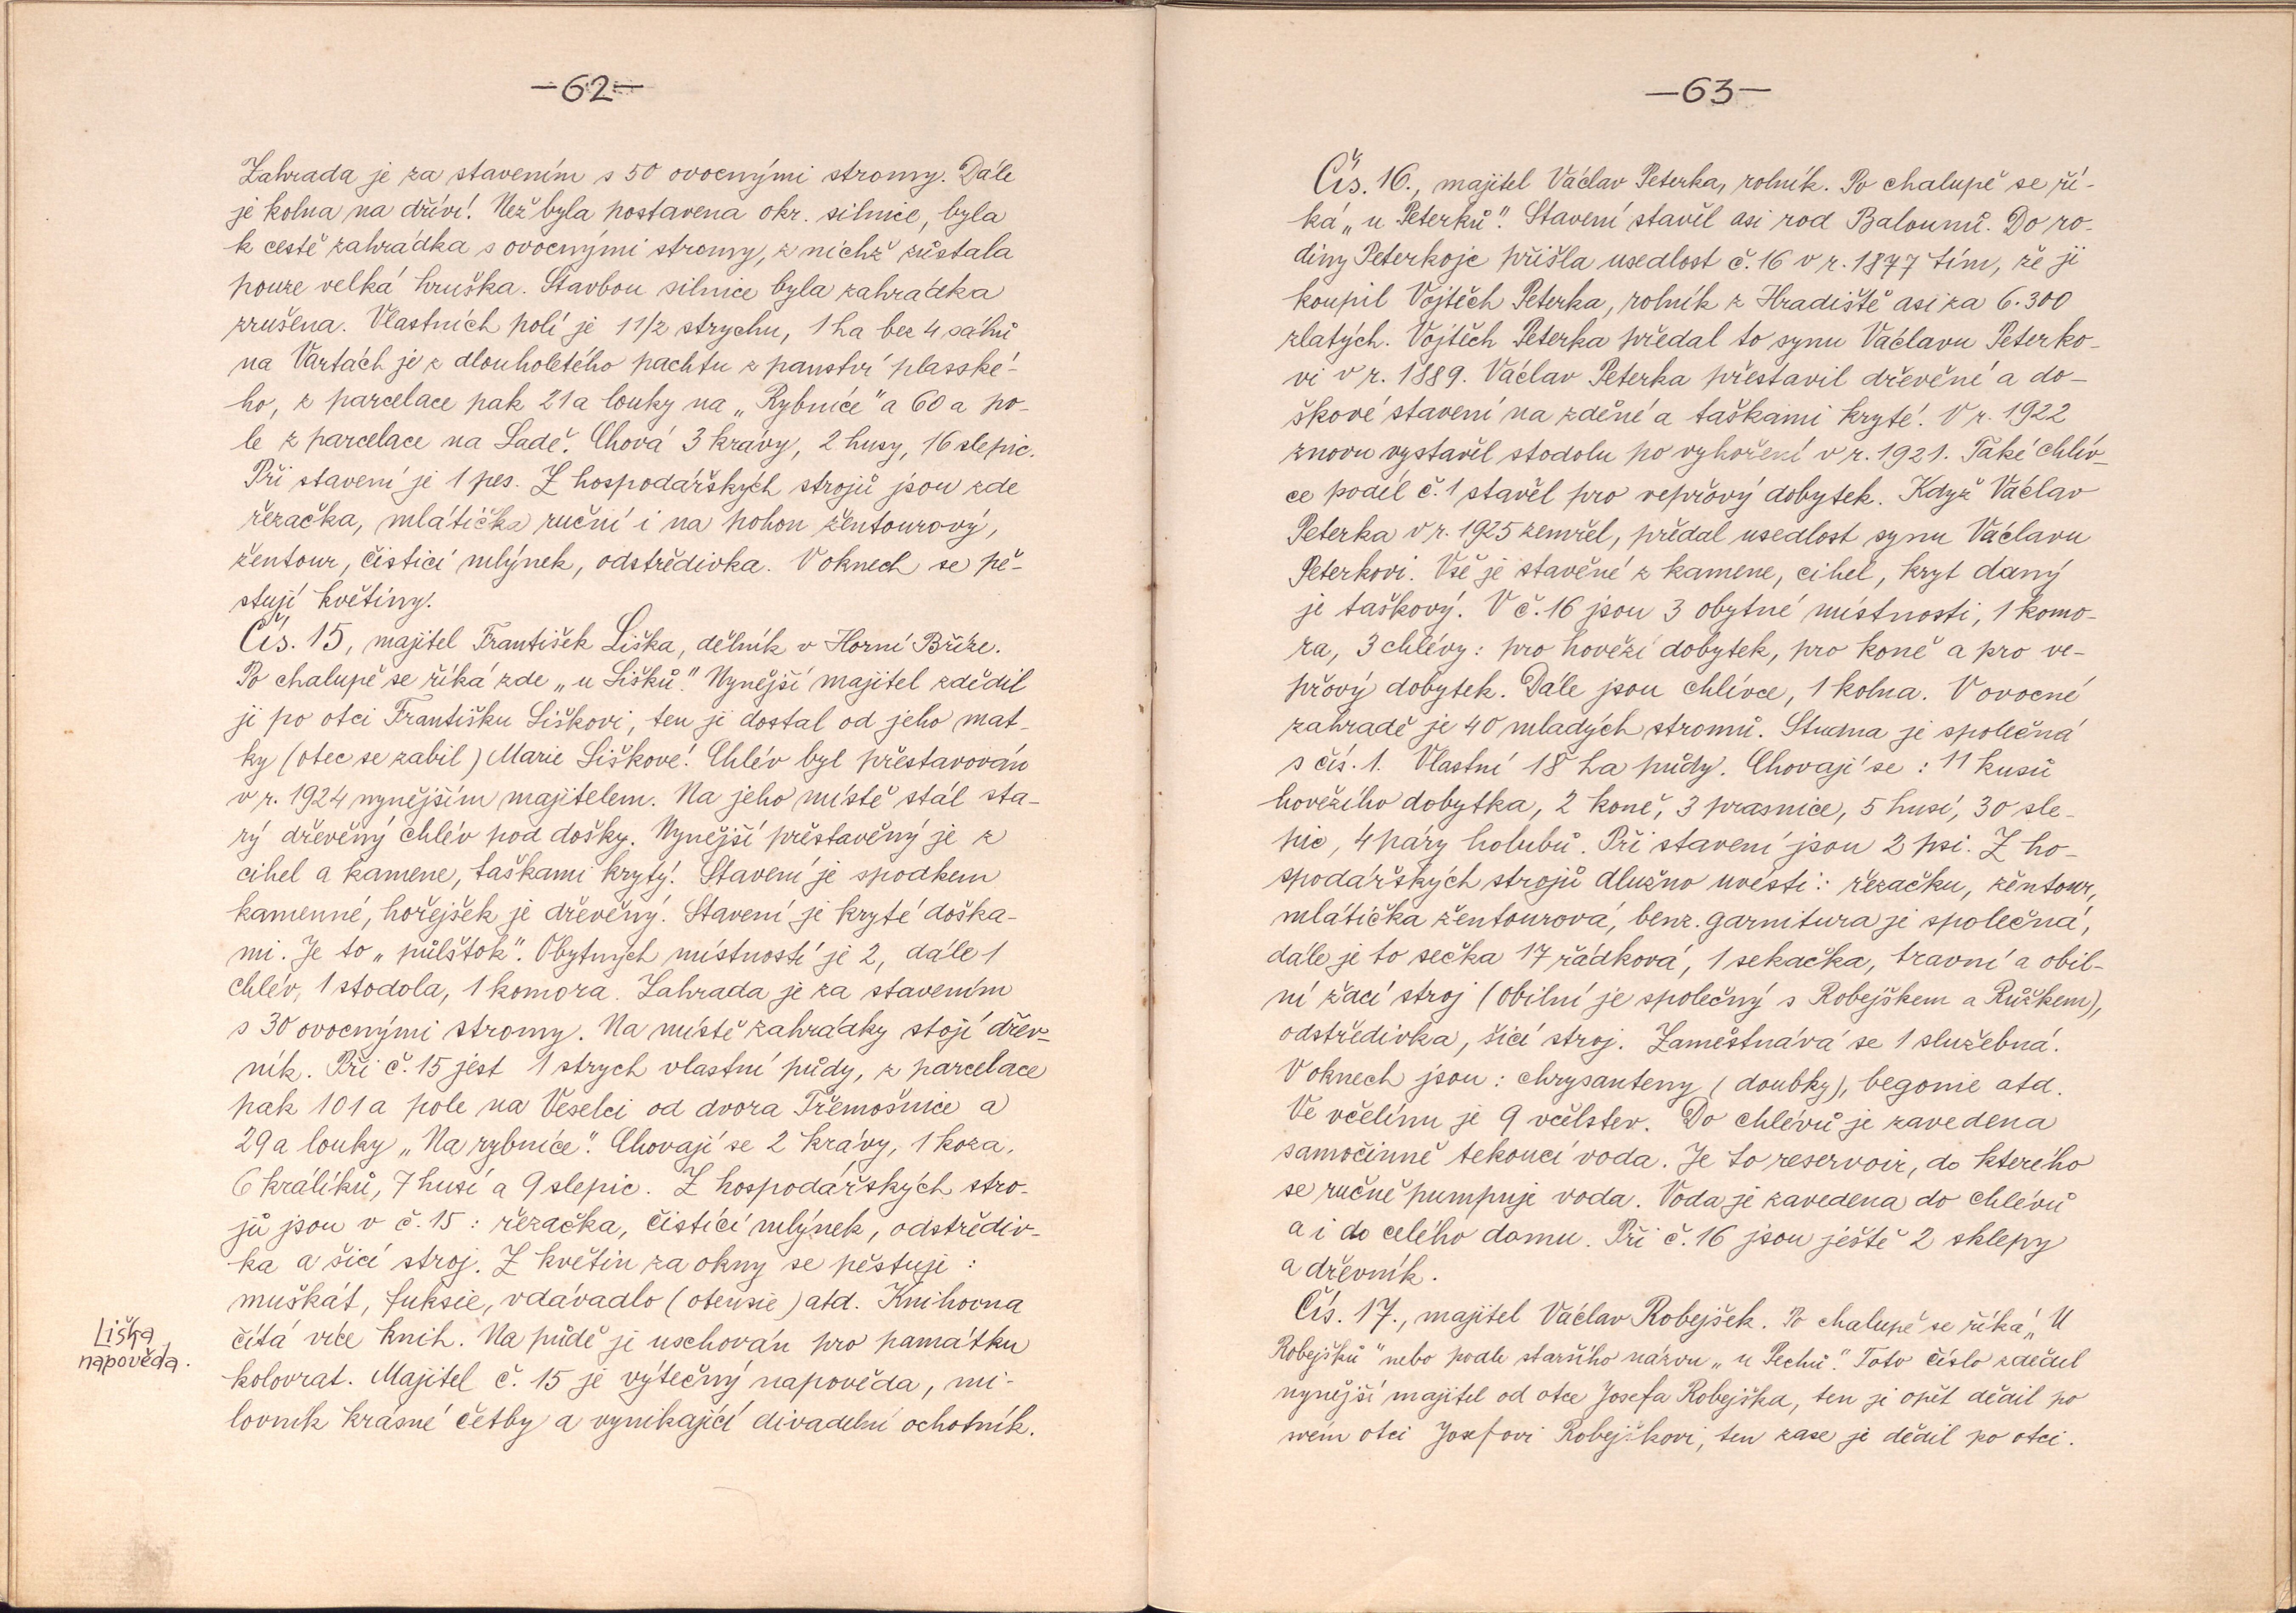 —62—
Zahrada je za stavením s 50 ovocnými stromy. Dále
je kolna na dříví. Než byla postavena okr. silnice, byla
k cestě zahrádka s ovocnými stromy, z nichž zůstala
pouze velká hruška. Stavbou silnice byla zahrádka
zrušena. Vlastních polí je 1 1/2 strychu, 1 ha bez 4 sáhů
na Vartách je z dlouholetého pachtu z panství plasské-
ho, z parcelace pak 21 a louky na „Rybníce" a 60 a po-
le z parcelace na Sadě. Chová 3 krávy, 2 husy, 16 slepic.
Při stavení je 1 pes. Z hospodářských strojů jsou zde
řezačka, mlátička ruční i na pohon žentourový,
žentour, čistící mlýnek, odstředivka. V oknech se pě-
stují květiny.
Čís. 15, majitel František Liška, dělník v Horní Bříze.
Po chalupě se říká zde „u Lišků." Nynější majitel zdědil
ji po otci Františku Liškovi, ten ji dostal od jeho mat-
ky (otec se zabil) Marie Liškové. Chlév byl přestavován
v r. 1924 nynějším majitelem. Na jeho místě stál sta-
rý dřevěný chlév pod došky. Nynější přestavěný je z
cihel a kamene, taškami krytý. Stavení je spodkem
kamenné, hořejšek je dřevěný. Stavení je kryté doška-
mi. Je to „půlštok". Obytných místností je 2, dále 1
chlév, 1 stodola, 1 komora. Zahrada je za stavením
s 30 ovocnými stromy. Na místě zahrádky stojí dřev-
ník. Při č. 15 jest 1 strych vlastní půdy, z parcelace
pak 101 a pole na Veselci od dvora Třemošnice a
29 a louky „Na rybníce". Chovají se 2 krávy, 1 koza,
6 králíků, 7 husí a 9 slepic. Z hospodářských stro-
jů jsou v č. 15: řezačka, čistící mlýnek, odstřediv-
ka a šicí stroj. Z květin za okny se pěstuje:
muškát, fuksie, vdávadlo (otensie) atd. Knihovna
čítá více knih. Na půdě je uschován pro památku
kolovrat. Majitel č. 15 je výtečný napověda, mi-
lovník krásné četby a vynikající divadelní ochotník.
Liška,
napověda.
—63—
Čís. 16., majitel Václav Peterka, rolník. Po chalupě se ří-
ká „u Peterků". Stavení stavěl asi rod Balounů. Do ro-
diny Peterkoje přišla usedlost č. 16 v r. 1877 tím, že ji
koupil Vojtěch Peterka, rolník z Hradiště asi za 6.300
zlatých. Vojtěch Peterka předal to synu Václavu Peterko-
vi v r. 1889. Václav Peterka přestavil dřevěné a do-
škové stavení na zděné a taškami kryté. V r. 1922
znovu vystavěl stodolu po vyhoření v r. 1921. Také chlív-
ce podél č. 1 stavěl pro vepřový dobytek. Když Václav
Peterka v r. 1925 zemřel, předal usedlost synu Václavu
Peterkovi. Vše je stavěné z kamene, cihel, kryt daný
je taškový. V č. 16 jsou 3 obytné místnosti, 1 komo-
ra, 3 chlévy: pro hovězí dobytek, pro koně a pro ve-
přový dobytek. Dále jsou chlívce, 1 kolna. V ovocné
zahradě je 40 mladých stromů. Studna je společná
s čís. 1. Vlastní 18 ha půdy. Chovají se: 11 kusů
hovězího dobytka, 2 koně, 3 prasnice, 5 husí, 30 sle-
pic, 4 páry holubů. Při stavení jsou 2 psi. Z ho-
spodářských strojů dlužno uvésti: řezačku, žentour,
mlátička žentourová, benz. garnitura je společná,
dále je to sečka 17 řádková, 1 sekačka, travní a obil-
ní žací stroj (obilní je společný s Robejškem a Růžkem),
odstředivka, šicí stroj. Zaměstnává se 1 služebná.
V oknech jsou: chrysanteny (doubky), begonie atd.
Ve včelínu je 9 včelstev. Do chlévů je zavedena
samočinně tekoucí voda. Je to reservoir, do kterého
se ručně pumpuje voda. Voda je zavedena do chlévů
a i do celého domu. Při č. 16 jsou ještě 2 sklepy
a dřevník.
Čís. 17., majitel Václav Robejšek. Po chalupě se říká „U
Robejšků" nebo podle staršího názvu „u Pechů". Toto číslo zdědil
nynější majitel od otce Josefa Robejška, ten je opět dědil po
svém otci Josefovi Robejškovi, ten zase je dědil po otci.